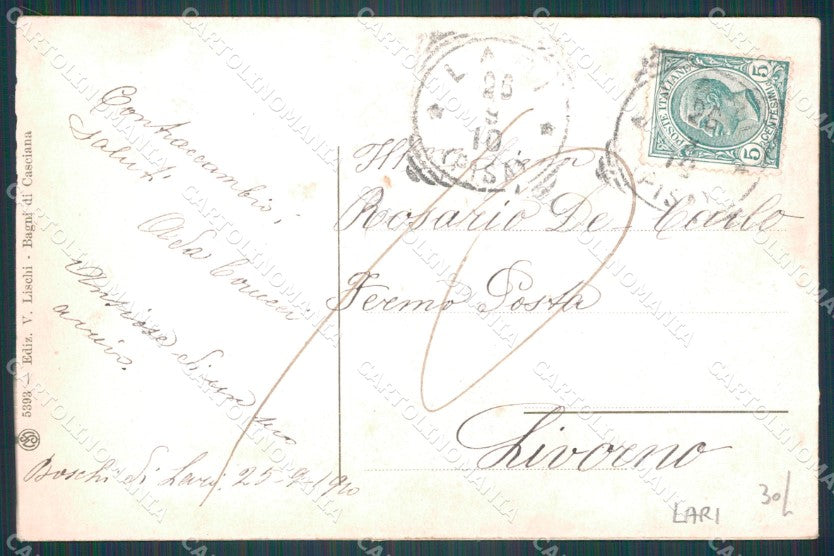 Contraccambio,
saluti
Ada
arrivo.
Boschi di Lari 25-9-1910
5393 - Ediz. V. Lischi - Bagni di Casciana
LARI
26
9
10
(PISA)
POSTE ITALIANE
5 CENTESIMI 5
26
10
PISA
Rosario De Carlo
Fermo Posta
Livorno
LARI
30/
CARTOLINOMANIA